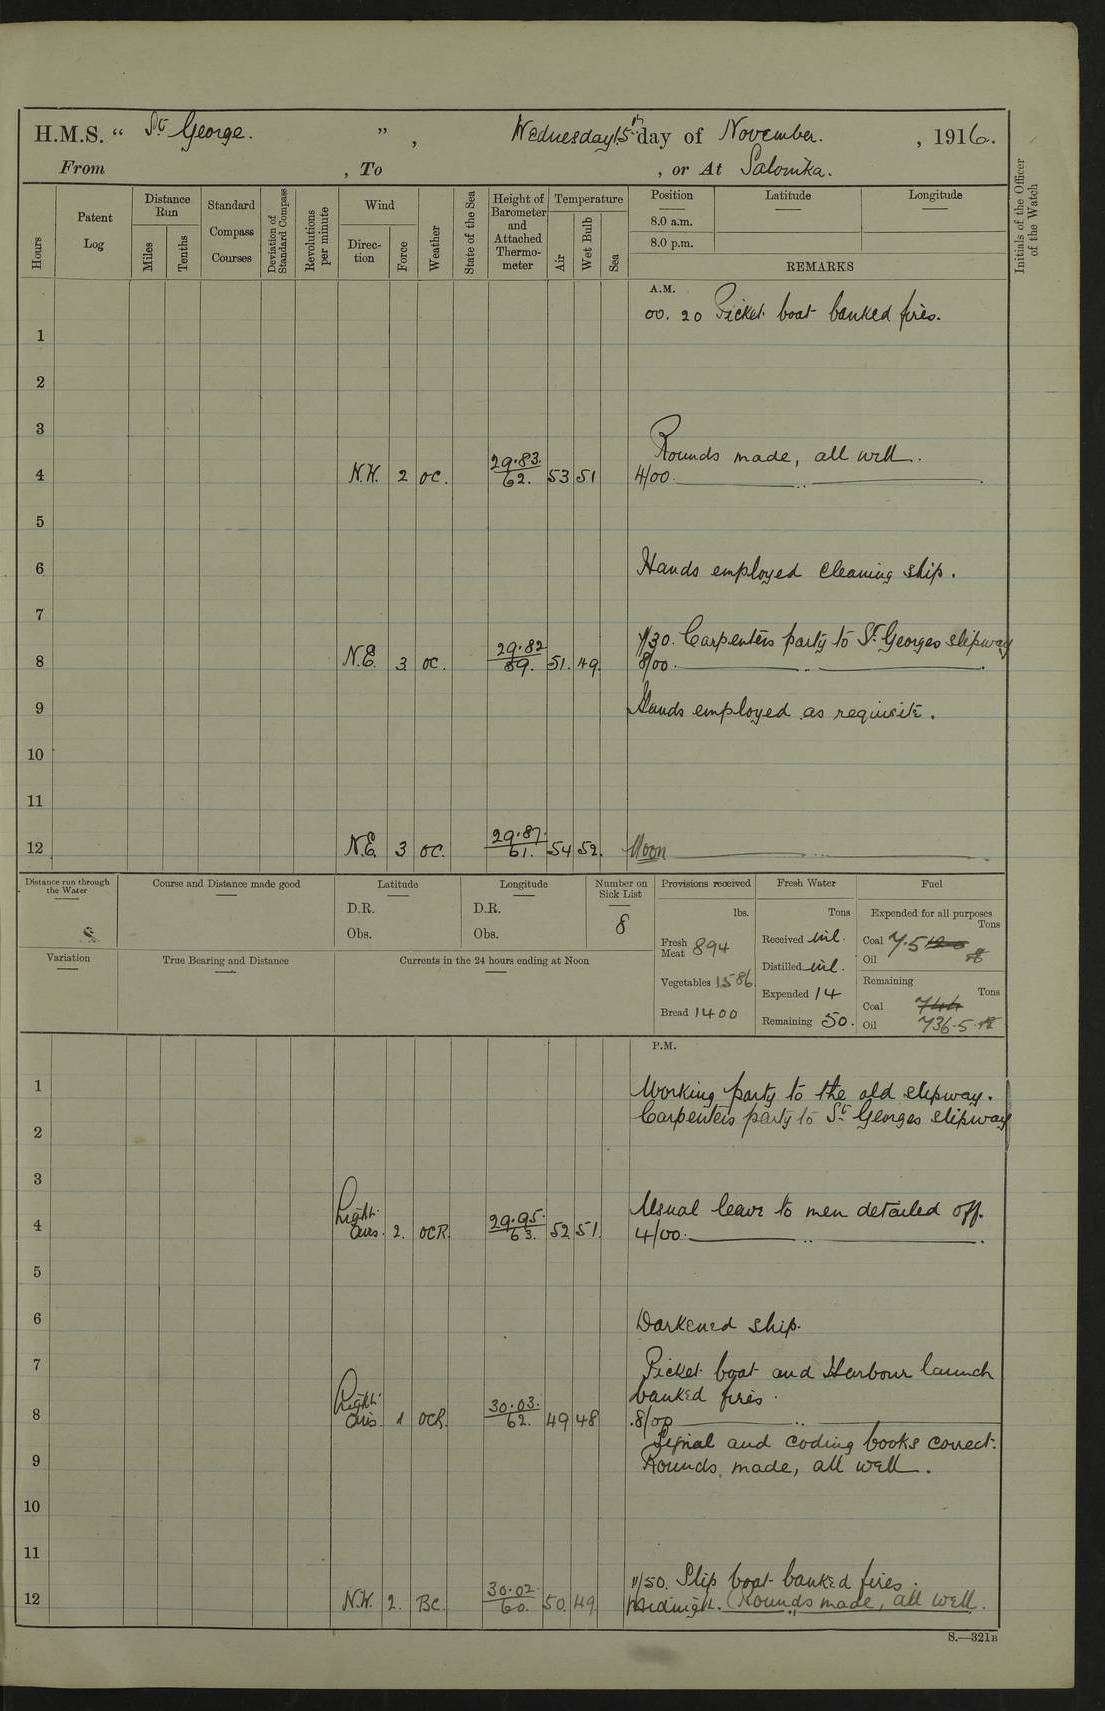 H.M.S. “ St. George. ” , Wednesday 15th day of November. , 1916.
From , To , or At Salonika.
Hours
Patent Log
Distance Run
Miles
Tenths
Standard Compass Courses
Deviation of Standard Compass
Revolutions per minute
Wind
Direction
Force
Weather
State of the Sea
Height of Barometer and Attached Thermometer
Temperature
Air
Wet Bulb
Sea
Position
8.0 a.m.
8.0 p.m.
Latitude
Longitude
REMARKS
Initials of the Officer of the Watch
A.M.
00.20 Picket boat banked fires.
1
2
3
Rounds made, all well.
4 N.W. 2 oc. 29.83. 62. 53 51 4/00. ..
5
6 Hands employed cleaning ship.
7
7/30. Carpenters party to St. Georges slipway
8 N.E. 3 oc. 29.82 59. 51. 49. 8/00. ..
9 Hands employed as requisite.
10
11
12 N.E. 3 oc. 29.87. 61. 54 52. Noon ..
Distance run through the Water
Course and Distance made good
Latitude
D.R.
Obs.
Longitude
D.R.
Obs.
Number on Sick List
8
Variation
True Bearing and Distance
Currents in the 24 hours ending at Noon
Provisions received
lbs.
Fresh Meat 894
Vegetables 1586
Bread 1400
Fresh Water
Tons
Received nil.
Distilled nil.
Expended 14
Remaining 50.
Fuel
Expended for all purposes
Tons
Coal 7.5
Oil
Remaining
Tons
Coal
Oil 736.5
P.M.
1 Working party to the old slipway.
Carpenters party to St. Georges slipway
2
3
Usual leave to men detailed off.
4 Light airs. 2. OCR. 29.95. 63. 52 51. 4/00. ..
5
6 Darkened ship.
7 Picket boat and Harbour launch
banked fires.
8 Light airs. 1 OCR. 30.03. 62. 49 48 8/00 ..
Signal and coding books correct.
9 Rounds made, all well.
10
11
11/50. Slip boat banked fires.
12 N.W. 2. BC. 30.02. 60. 50. 49. Midnight. Rounds made, all well.
S.—321B